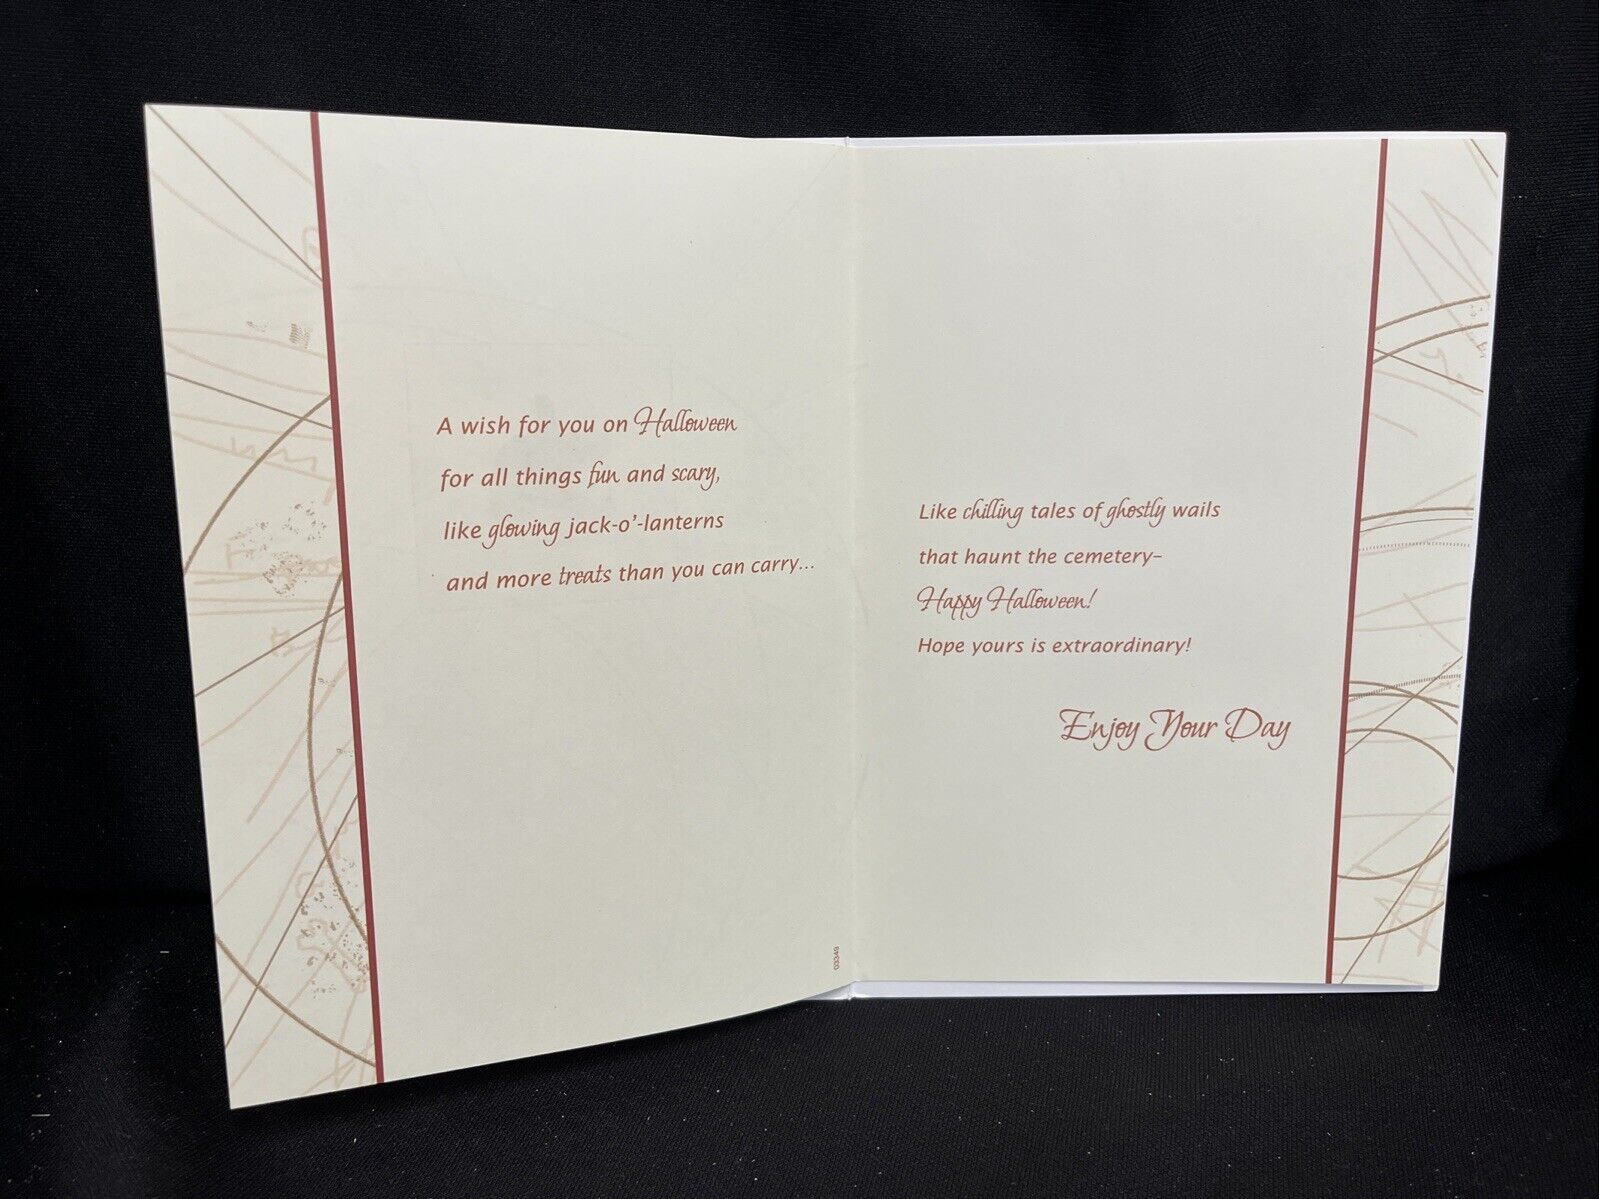 A wish for you on Halloween
for all things fun and scary,
like glowing jack-o'-lanterns
and more treats than you can carry...
03349
Like chilling tales of ghostly wails
that haunt the cemetery–
Happy Halloween!
Hope yours is extraordinary!
Enjoy Your Day